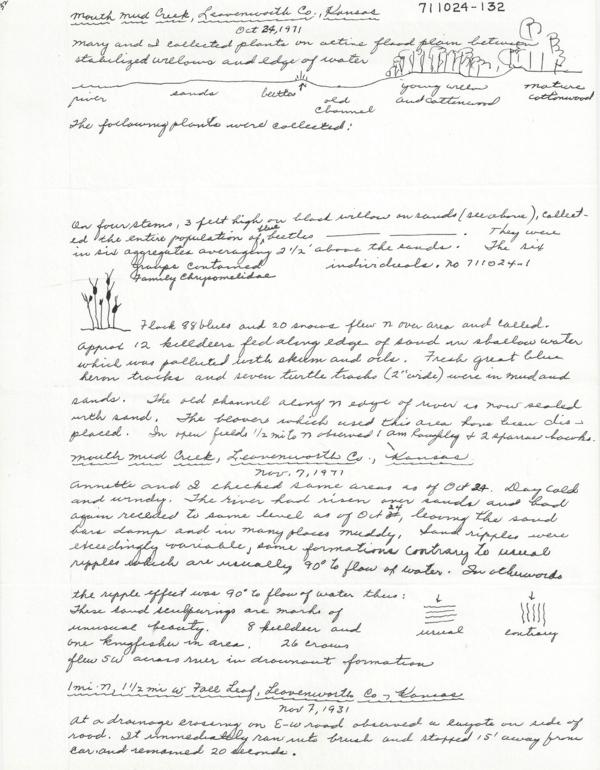 Mouth Mud Creek, Leavenworth Co., Kansas 711024-132
Oct 24, 1971
Mary and I collected plants on active flood plain between
stabilized willows and edge of water
river sands beetle old channel young willow and cottonwood mature cottonwood
The following plants were collected:
On four stems, 3 feet high on black willow on sands (see above), collect-
ed the entire population of blue beetles ______ ______. They were
in six aggregates averaging 2 1/2' above the sands. The six
groups contained individuals. no 711024-1
Family Chrysomelidae
Flock 88 blues and 20 snows flew N over area and called.
Approx 12 killdeers fed along edge of sand in shallow water
which was polluted with skum and oils. Fresh great blue
heron tracks and seven turtle tracks (2" wide) were in mud and
sands. The old channel along N edge of river is now sealed
with sand. The which used this area have been dis-
placed. In open fields 1/2 mi to N observed 1 am roughleg + 2 sparrow hawks.
Mouth Mud Creek, Leavenworth Co., Kansas
Nov. 7, 1971
Annette and I checked same areas as of Oct 24. Day cold
and windy. The river had risen over sands and had
again receded to same level as of Oct 24, leaving the sand
bars damp and in many places muddy. Sand ripples were
exceedingly variable, some formations contrary to usual
ripples which are usually 90° to flow of water. In otherwords
the ripple effect was 90° to flow of water thus:
These sand sculpurings are marks of
unusual beauty. 8 killdeer and usual contrary
one kingfisher in area. 26 crows
flew SW across river in drawnout formation
1 mi N, 1 1/2 mi W Fall Leaf, Leavenworth Co., Kansas
Nov 7, 1931
At a drainage crossing on E-W road observed a coyote on side of
road. It immediately ran into brush and stopped 15' away from
car and remained 20 seconds.